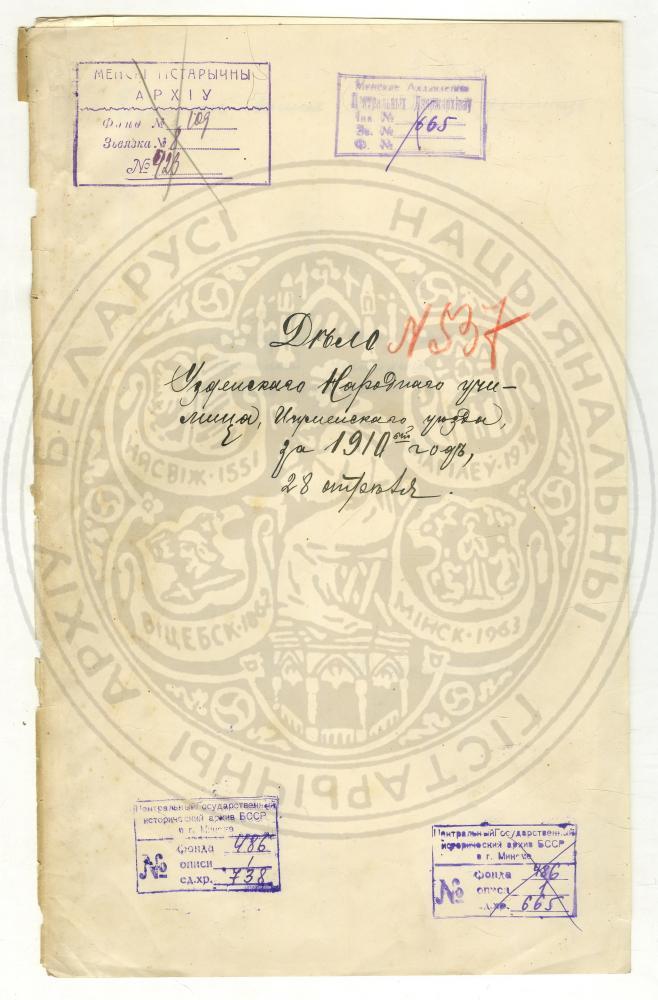 МЕНСКІ ГІСТАРЫЧНЫ
АРХІУ
Фонд № 109
Звязка № 8
№ 926
Менскае Аддзяленне
Цэнтральных
Інв. №
Зв. № 665
Ф. №
Дѣло N 537
Узденскаго Народнаго учи-
лища, Игуменскаго уѣзда,
за 1910 ый годъ,
28 апрѣля.
НАЦЫЯНАЛЬНЫ ГІСТАРЫЧНЫ АРХІЎ БЕЛАРУСІ
ВІЦЕБСК·1862
МІНСК·1963
Центральный Государственный
исторический архив БССР
в г. Минске
№ фонда 486
описи 1
ед.хр. 738
Центральный Государственный
исторический архив БССР
в г. Минске
№ фонда 486
описи 1
ед.хр. 665